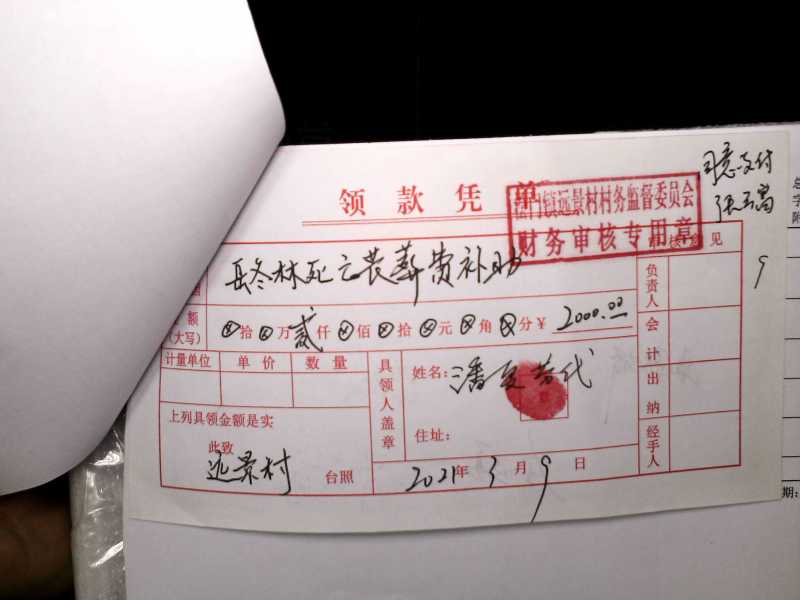 同意支付
领款凭单
镇远景村村务监督委员会
财务审核专用章
审核意见
冬林死亡丧葬费补助
负责人
额
(大写)
⊗拾⊗万贰仟⊗佰⊗拾⊗元⊗角⊗分¥2000.00
会计
计量单位 单价 数量
具领人盖章
姓名:潘
出纳
上列具领金额是实
此致
住址:
经手人
远景村 台照
2021年3月9日
总
字
附
期: